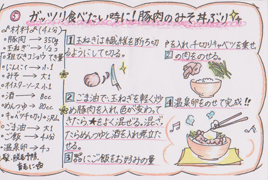 ③ ガッツリ食べたい時に!豚肉のみそ丼ぶり
1 玉ねぎは繊維を断ち切
るようにして切る。
2 ごま油で、玉ねぎを軽く炒
め豚肉を入れ、色が変わって
きたら★をよく混ぜる。混ざっ
たらめんつゆと酒を入れ煮立た
せる。
3 丼にご飯をお好みの量
を入れ、千切りキャベツを乗せ
の肉をのせる。
4 温泉卵をのせて完成!!
材料(4人分)
豚肉 → 350g
玉ねぎ →
にんにく →
みそ → 大1
オイスターソース → 大1
酒 →
めんつゆ → 80cc
キャベツ千切り
ごま油 → 大1
ご飯 → 4人分
温泉卵 → 4コ